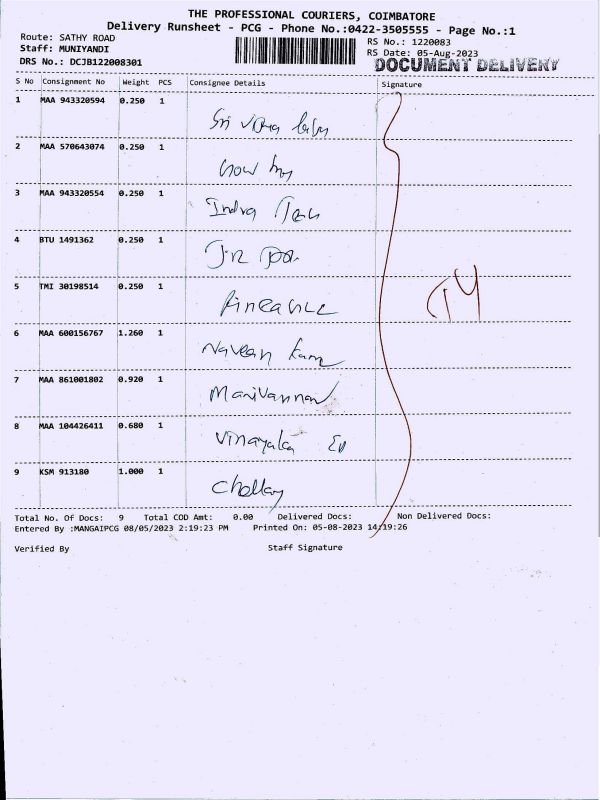 THE PROFESSIONAL COURIERS, COIMBATORE
Delivery Runsheet - PCG - Phone No.:0422-3505555 - Page No.:1
Route: SATHY ROAD
Staff: MUNIYANDI
DRS No.: DCJB122008301
RS No.: 1220083
RS Date: 05-Aug-2023
DOCUMENT DELIVERY
S No Consignment No Weight PCS Consignee Details Signature
1 MAA 943320594 0.250 1
Sri
2 MAA 570643074 0.250 1
3 MAA 943320554 0.250 1
Indra
4 BTU 1491362 0.250 1
5 TMI 30198514 0.250 1
6 MAA 600156767 1.260 1
Naveen
7 MAA 861001802 0.920 1
Manivannan
8 MAA 104426411 0.680 1
Vinayaka
9 KSM 913180 1.000 1
Total No. Of Docs: 9 Total COD Amt: 0.00 Delivered Docs: Non Delivered Docs:
Entered By :MANGAIPCG 08/05/2023 2:19:23 PM Printed On: 05-08-2023 14:19:26
Verified By Staff Signature